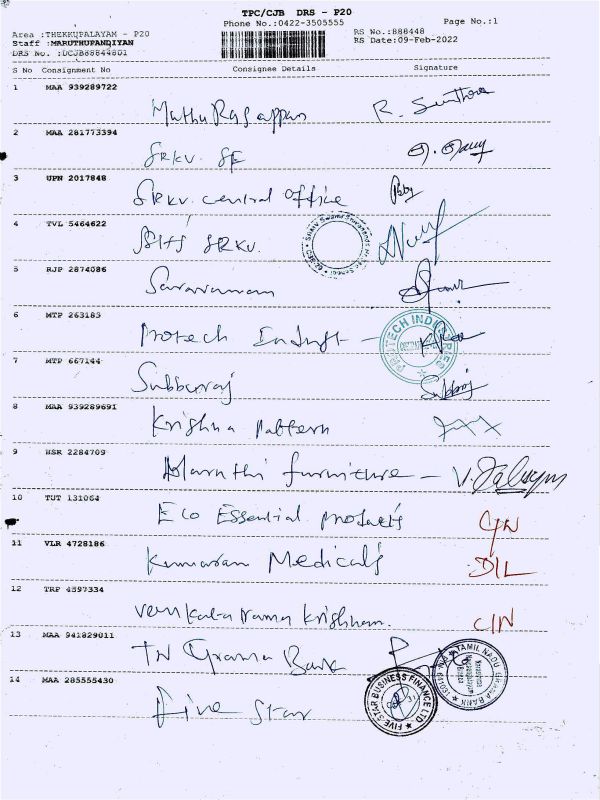 TPC/CJB DRS - P20
Phone No.:0422-3505555
Page No.:1
Area :THEKKUPALAYAM - P20
RS No.:888448
Staff :MARUTHUPANDIYAN
RS Date:09-Feb-2022
DRS No. :DCJB88844801
S No Consignment No Consignee Details Signature
1 MAA 939289722
Muthu Rasappan R.
2 MAA 281773394
SRKV. SF
3 UPN 2017848
SRKV. central office
4 TVL 5464622
SRKV.
5 RJP 2874086
Saravanan
6 MTP 263183
Protech Indust -
PROTECH INDUSTRIES
7 MTP 667144
Subburaj
8 MAA 939289691
Krishna Pattern
9 HSR 2284709
Maruthi furniture - V.
10 TUT 131064
Eco Essential products
11 VLR 4728186
Kumaran Medicals DIL
12 TRP 4597334
Venkata rama Krishnan. CIN
13 MAA 941829011
TN Grama Bank
TAMIL NADU GRAMA BANK
14 MAA 285555430
Five Star
FIVE STAR BUSINESS FINANCE LTD